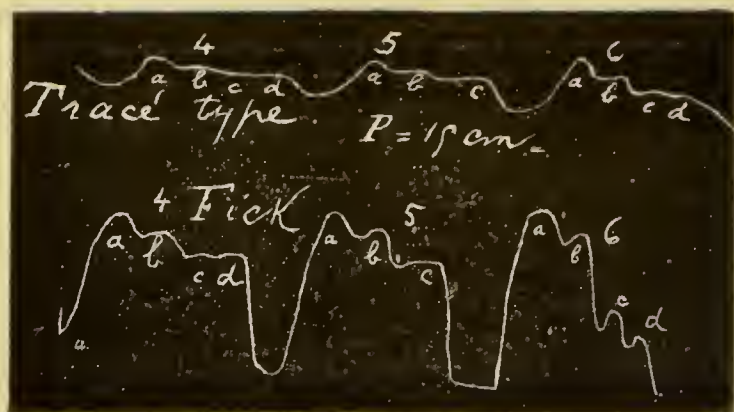 4 5 6
a b c d a b c a b c d
Tracé type P = 15 cm.
4 Fick 5 6
a b c d a b c a b c d
a